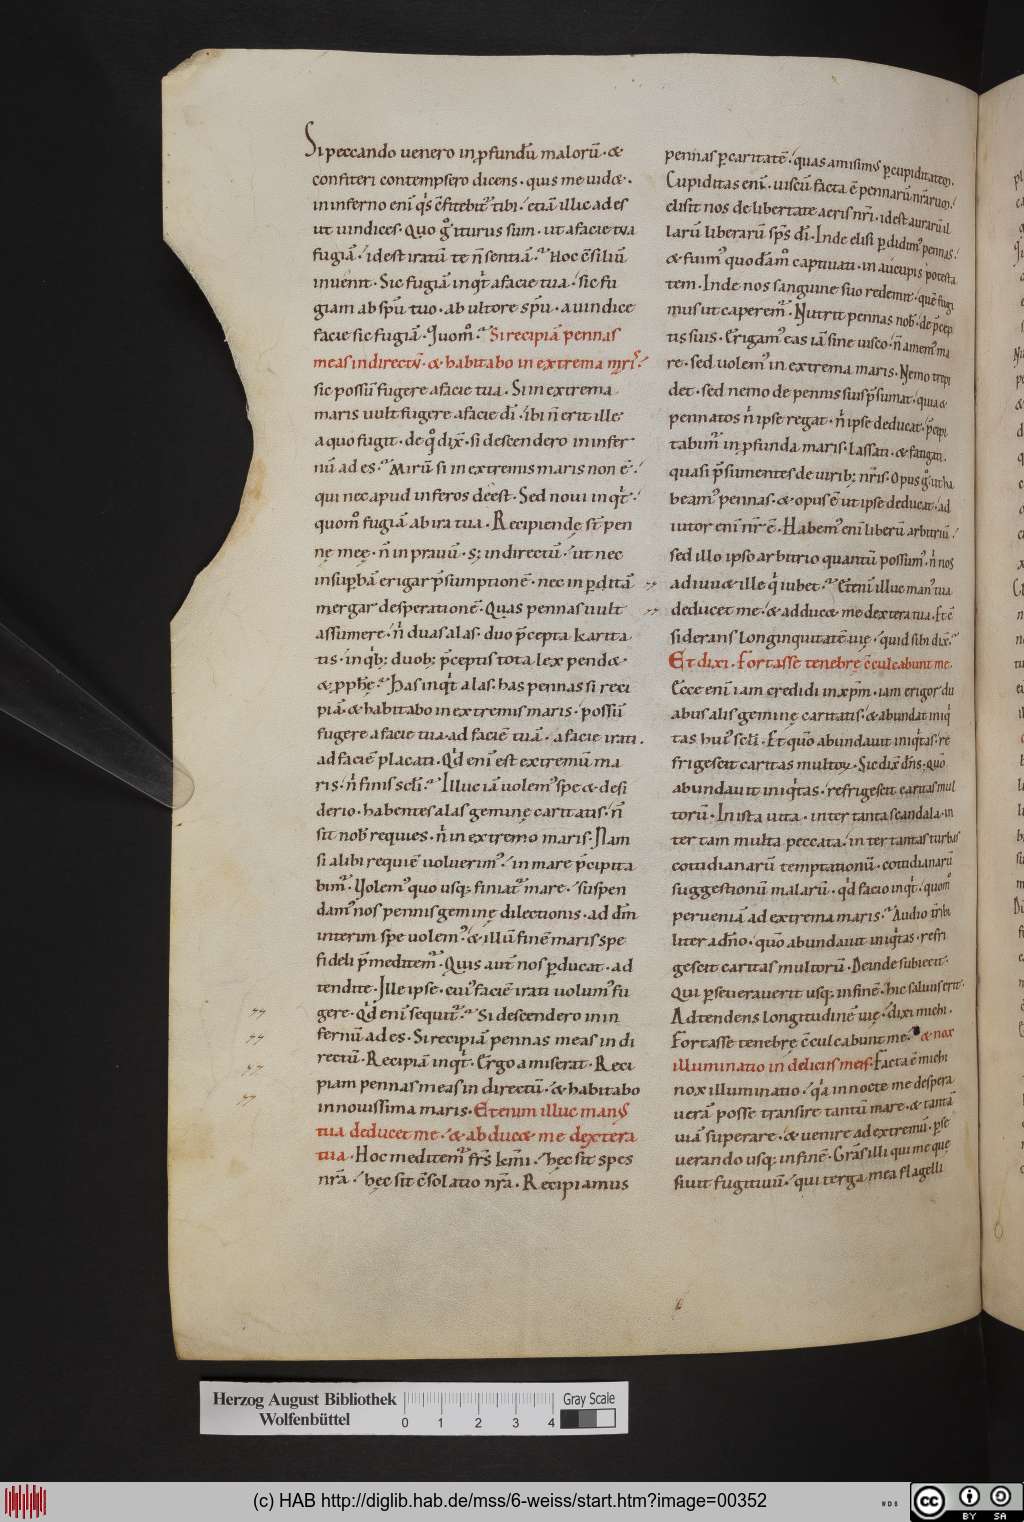 Si peccando uenero in ꝓfundū malorū· &
confiteri contempsero dicens· quis me uid&·
in inferno enī q̇s c̄fitebit̄ tibi· etiā illic ades
ut uindices· Quo g̊ iturus sum· ut a facie tua
fugiā· id est iratū te n̄ sentiā· Hoc c̄siliū
inuenit· Sic fugiā inq̇t a facie tua· sic fu
giam ab sp̄u tuo· ab ultore sp̄u· a uindice
facie sic fugiā· Quom̊· Si recipiā pennas
meas in directū· & habitabo in extrema mris·
sic possū fugere a facie tua· Si in extrema
maris uult fugere a facie dī· ibi n̄ erit ille
a quo fugit· de q̊ dix̄· si descendero in infer
nū ades· Mirū si in extremis maris non ē·
qui nec apud inferos deest· Sed noui inq̇t·
quom̊ fugiā ab ira tua· Recipiendę st̄ pen
nę meę· n̄ in prauū· sꝫ in directū· ut nec
in suꝑbā erigar p̄sumptionē· nec in ꝑditā
mergar desperationē· Quas pennas uult
assumere· n̄ duas alas· duo p̄cepta karita
tis· in q̇bꝫ duobꝫ p̄ceptis tota lex pend&
& ꝓph̄ę· Has inq̇t alas· has pennas si reci
piā· & habitabo in extremis maris· possū
fugere a facie tua· ad faciē tuā· a facie irati·
ad faciē placati· Qd̄ enī est extremū ma
ris· n̄ finis sc̄li· Illuc iā uolem᷒ spe & desi
derio· habentes alas geminę caritatis· n̄
sit nob̄ requies· n̄ in extremo maris· Nam
si alibi requiē uoluerim᷒· in mare p̄cipita
bim̄· Uolem᷒ quo usqꝫ finiat̄ mare· suspen
dam᷒ nos pennis geminę dilectionis· ad dm̄
interim spe uolem᷒· & illū finē maris spe
fideli p̄meditem̄· Quis aut̄ nos ꝑducat· ad
tendite· Ille ipse· cui᷒ faciē irati uolum᷒ fu
gere· Qd̄ enī sequit̄· Si descendero in in
fernū ades· Si recipiā pennas meas in di
rectū· Recipiā inq̇t· Ergo amiserat· Reci
piam pennas meas in directū· & habitabo
in nouissima maris· Etenim illuc manus
tua deducet me· & abduc& me dextera
tua· Hoc meditem̄ frs̄ km̄i· hęc sit spes
nr̄a· hęc sit c̄solatio nr̄a· Recipiamus
pennas ꝑ caritatē· quas amisim᷒ ꝑ cupiditatem·
Cupiditas enī· uiscū facta ē pennarū nr̄arum·
elisit nos de libertate aeris nr̄i· id est aurarū il
larū liberarū sp̄s dī· Inde elisi ꝑdidim᷒ pennas·
& fuim᷒ quodam̊ captiuati· in aucupis potesta
tem· Inde nos sanguine suo redemit· quē fugi
mus ut caperem̄· Nutrit pennas nob̄· de p̄cep
tis suis· Erigam᷒ eas iā sine uisco· n̄ amem᷒ ma
re· sed uolem᷒ in extrema maris· Nemo trepi
det· sed nemo de pennis suis p̄sumat· quia &
pennatos n̄ ipse regat· n̄ ipse deducat· p̄cipi
tabim̄ in ꝓfunda maris· lassati· & fatigati·
quasi p̄sumentes de uiribꝫ nr̄is· Opus g̊· ut ha
beam᷒ pennas· & opus ē ut ipse deducat· ad
iutor enī nr̄ ē· Habem᷒ enī liberū arbitriū·
sed illo ipso arbitrio quantū possum᷒· n̄ nos
adiuu& ille q̇ iubet· Etenī illuc man᷒ tua
deducet me· & adduc& me dextera tua· Et c̄
siderans longinquitatē uię· quid sibi dix̄·
Et dixi· fortasse tenebrę c̄culcabunt me·
Ecce enī iam credidi in xp̄m· iam erigor du
abus alis geminę caritatis· & abundat iniq̇
tas hui᷒ scl̄i· Et quō abundauit iniq̇tas· re
frigescit caritas multoꝝ· Sic dix̄ dn̄s· quō
abundauit iniq̇tas· refrigescit caritas mul
torū· In ista uita· inter tanta scandala· in
ter tam multa peccata· inter tantas turbas
cottidianarū temptationū· cottidianarū
suggestionū malarū· qd̄ facio inq̇t· quom̊
perueniā ad extrema maris· Audio t̄ribi
liter a dn̄o· quō abundauit iniq̇tas· refri
gescit caritas multorū· Deinde subiecit·
Qui ꝑseuerauerit usqꝫ in finē· hic saluus erit·
Adtendens longitudinē uię· dixi michi·
Fortasse tenebrę c̄culcabunt me· & nox
illuminatio in deliciis meis· Facta ē michi
nox illuminatio· q̇a in nocte me despera
uerā posse transire tantū mare· & tantā
uiā superare· & uenire ad extremū· ꝑse
uerando usqꝫ in finē· Gr̄as illi qui me quę
siuit fugitiuū· qui terga mea flagelli
Herzog August Bibliothek
Wolfenbüttel
0 1 2 3 4
Gray Scale
(c) HAB http://diglib.hab.de/mss/6-weiss/start.htm?image=00352
WDB
cc BY SA